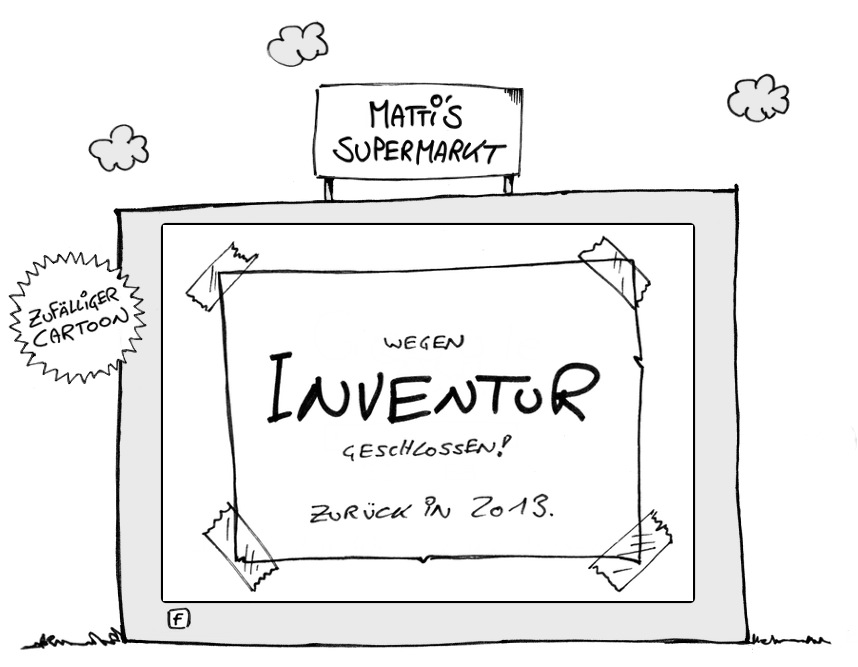 MATTI'S
SUPERMARKT
ZUFÄLLIGER
CARTOON
WEGEN
INVENTUR
GESCHLOSSEN!
ZURÜCK IN 2013.
F